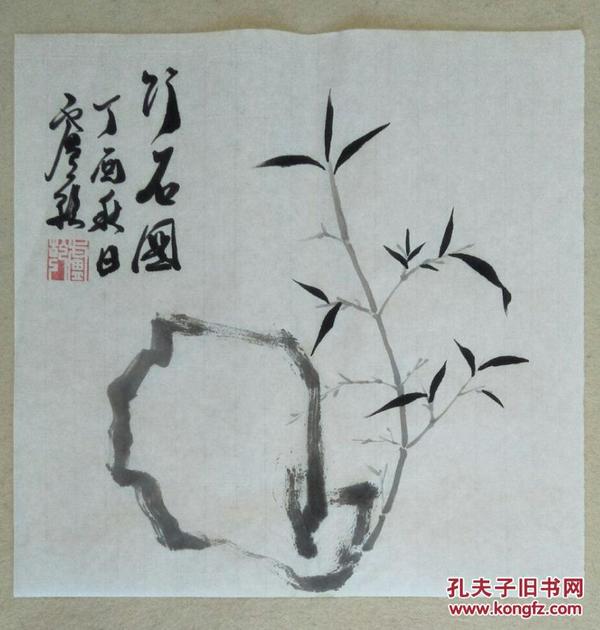 竹石圖
丁酉秋日
孔夫子旧书网
www.kongfz.com